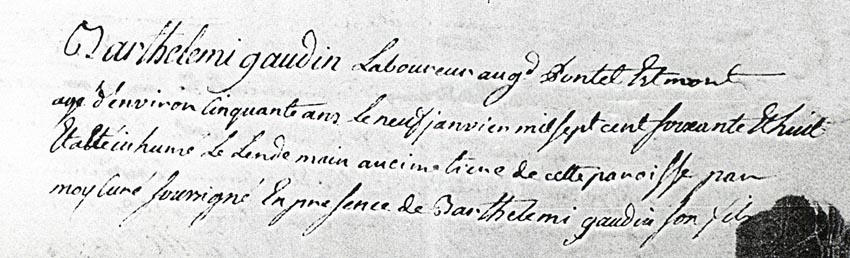 Barthelemi gaudin Laboureur au gd Pontel Est mort
agé d'environ Cinquante ans le neuf janvier mil sept cent soixante Et huit
Et a été inhumé Le Lendemain au cimetiere de cette paroisse par
moy Curé soussigné En presence de Barthelemi gaudin son fils